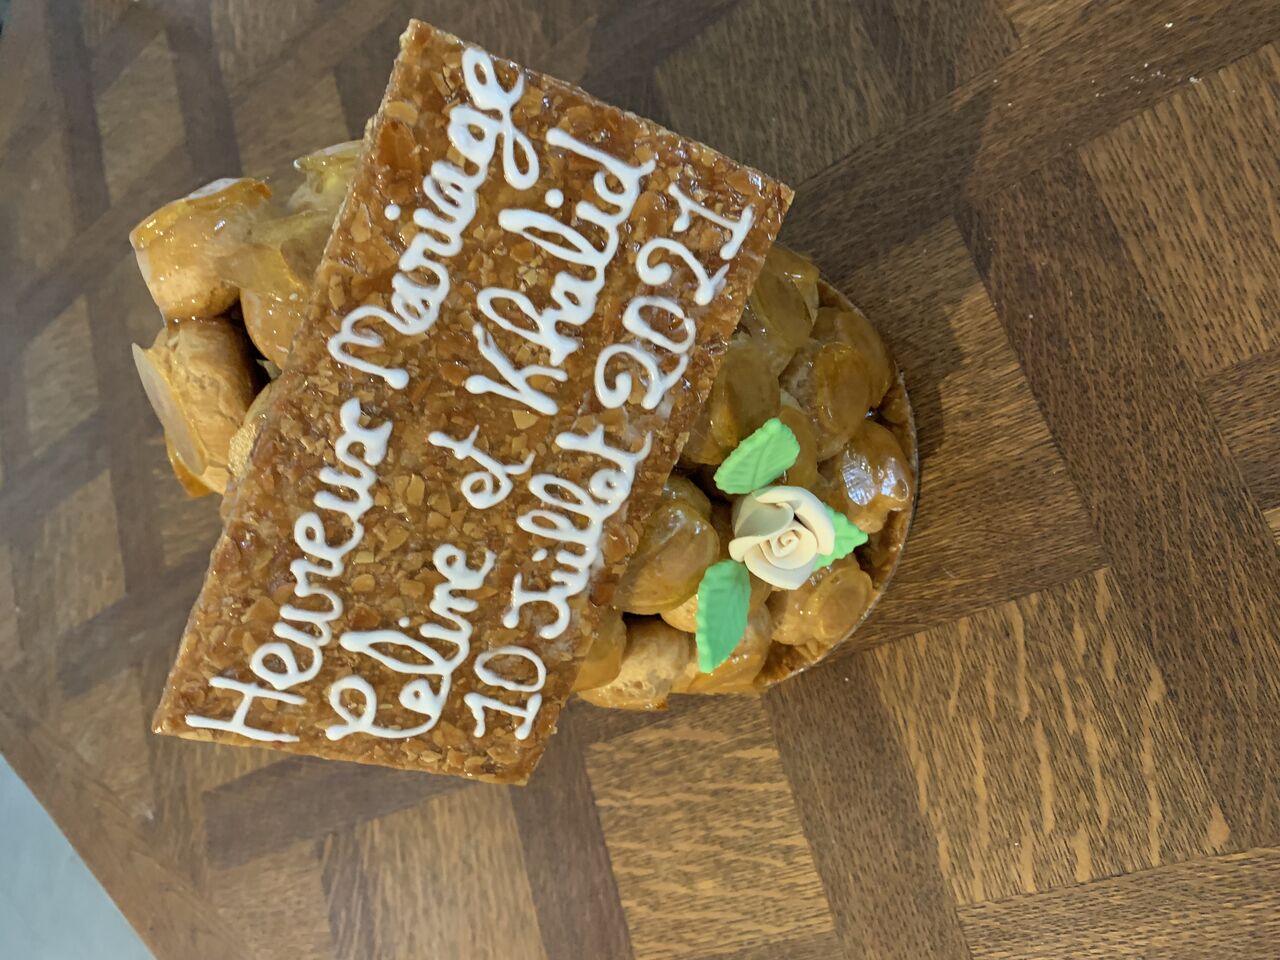 Heureux Mariage
Celine et Khalid
10 Juillet 2021